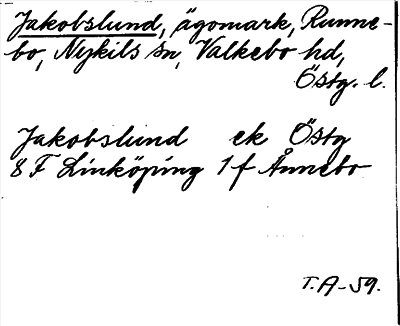 Jakobslund, ägomark, Runne-
bo, Nykils sn, Valkebo hd,
Östg. l.
Jakobslund ek Östg
8 F Linköping 1 f Ånnebo
T.A-59.